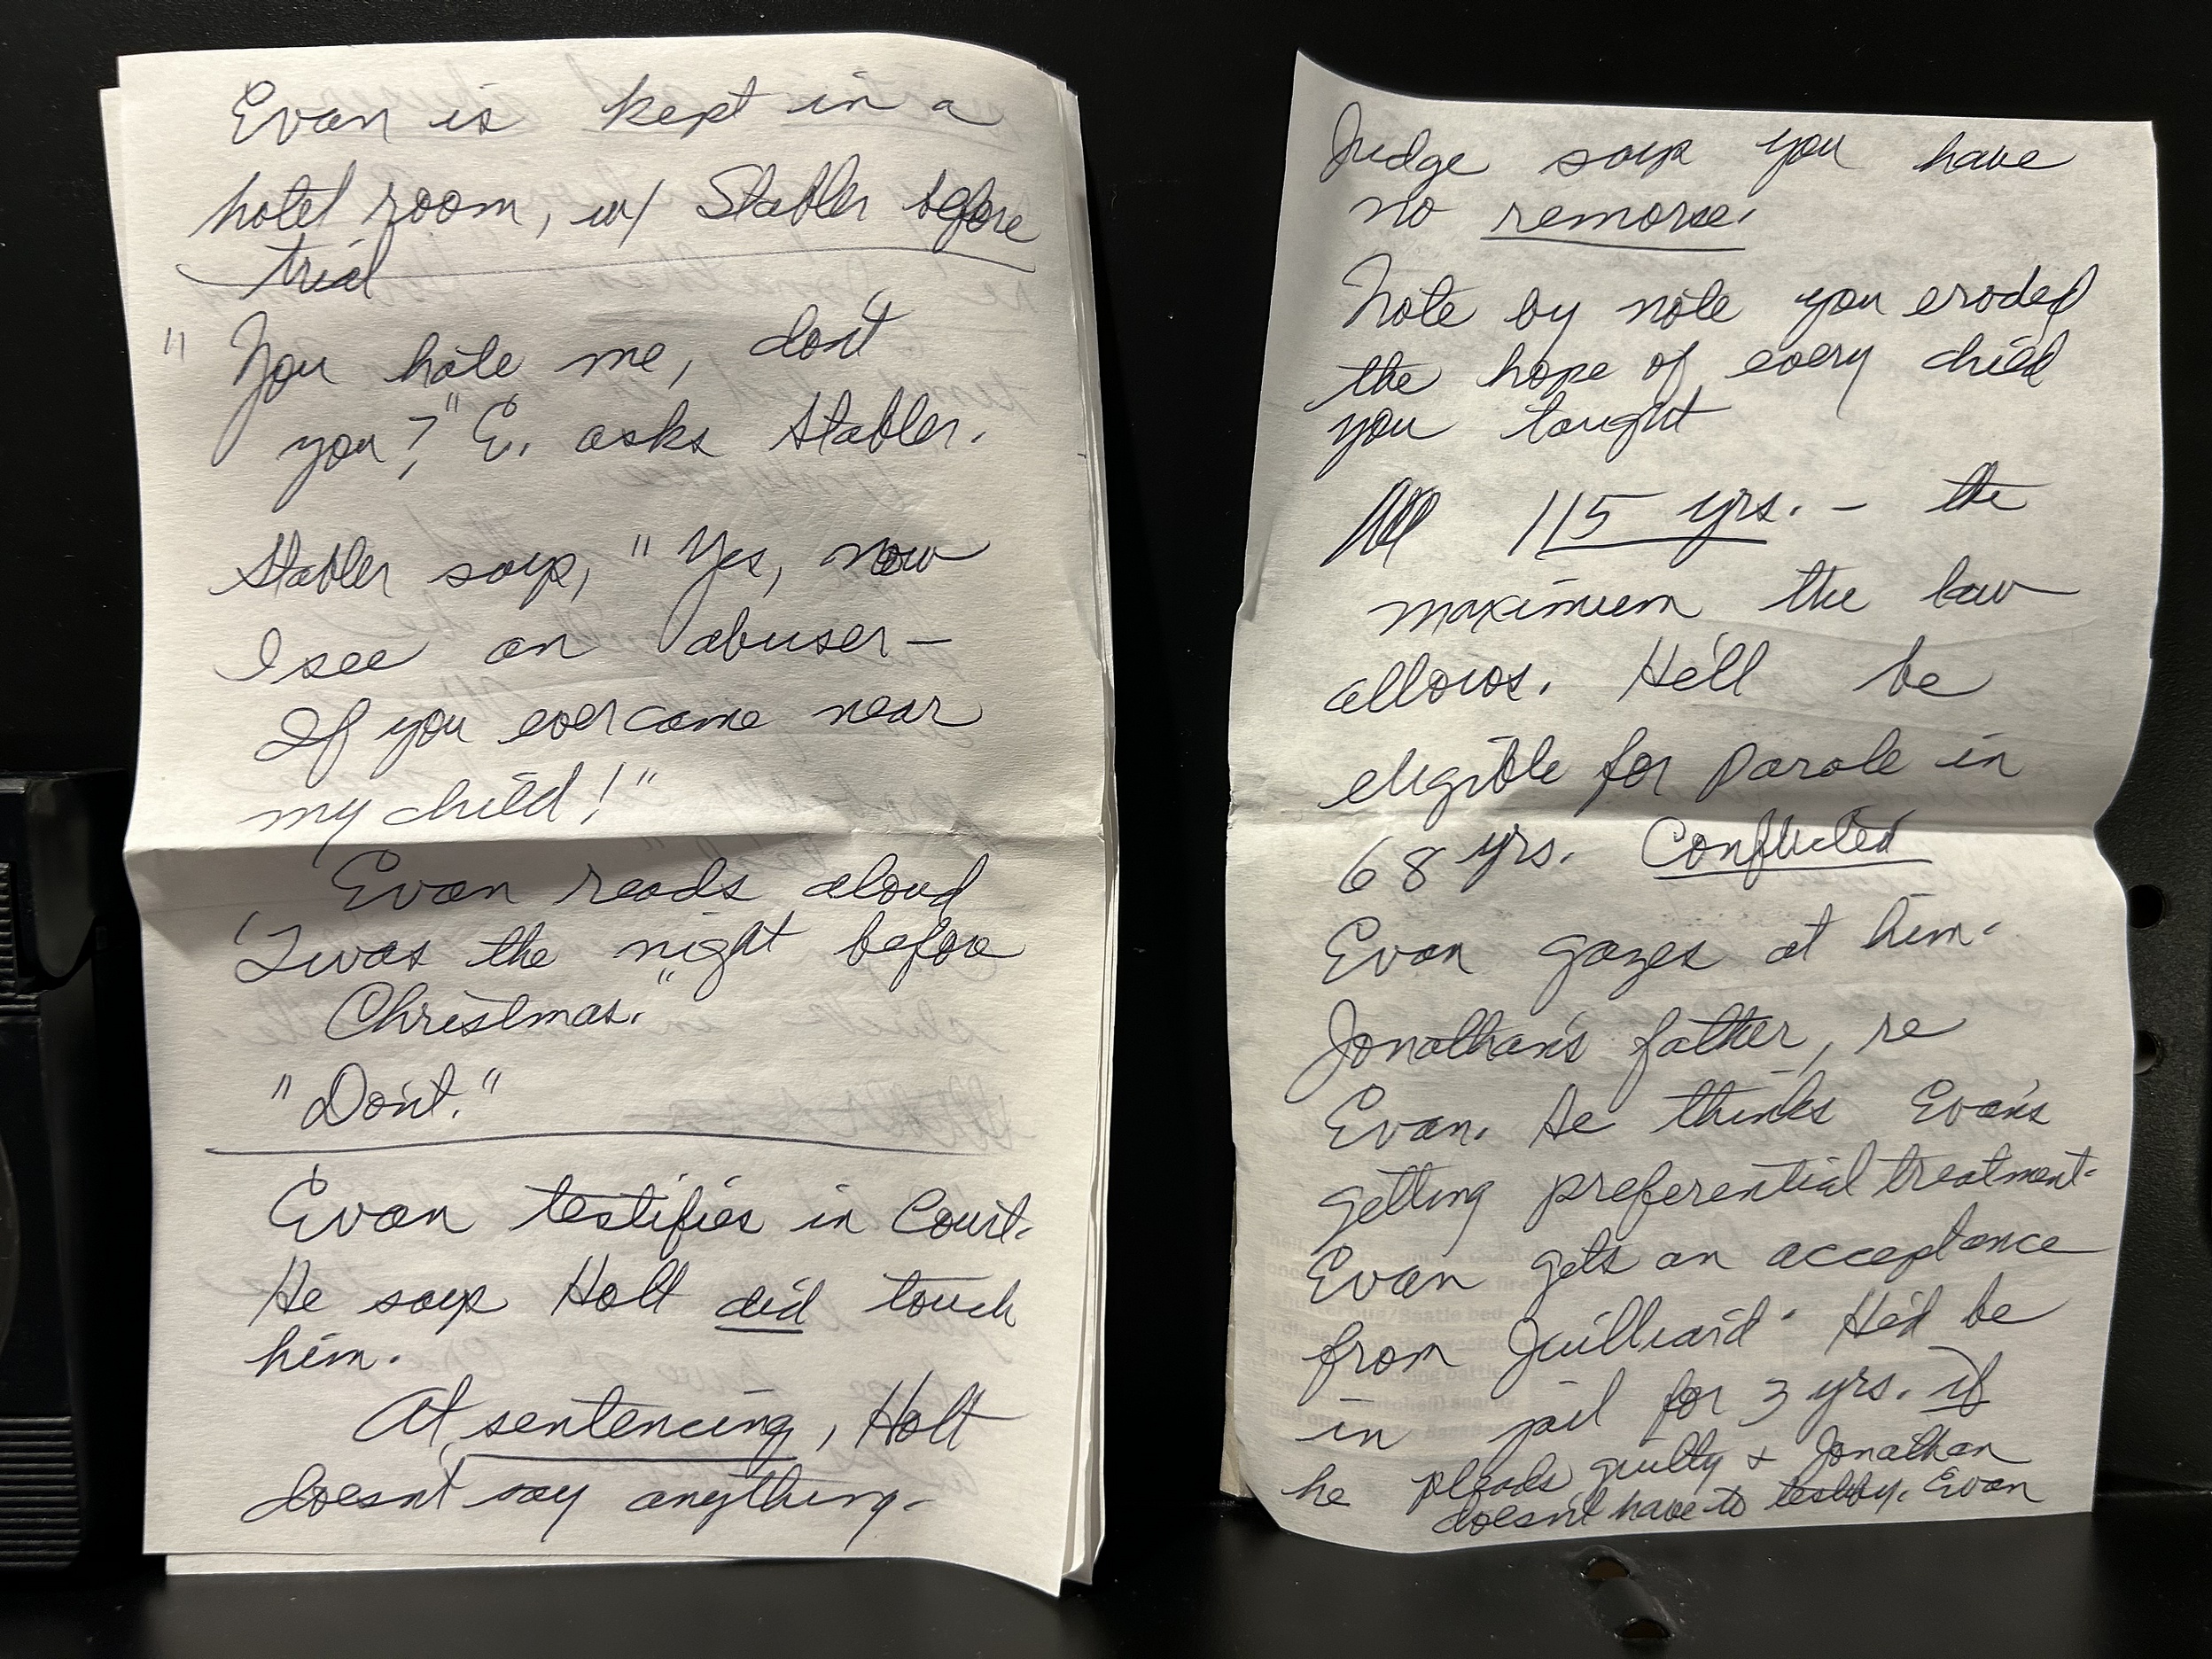 Evan is kept in a
hotel room, w/ Stabler before
trial
"You hate me, don't
you?" E. asks Stabler.
Stabler says, "Yes, now
I see an abuser –
If you ever come near
my child!"
Evan reads aloud
'Twas the night before
Christmas."
"Don't."
Evan testifies in Court.
He says Holt did touch
him.
At sentencing, Holt
doesn't say anything.
Judge says you have
no remorse.
Note by note you eroded
the hope of every child
you taught
115 yrs. – the
maximum the law
allows. He'll be
eligible for parole in
68 yrs. Conflicted
Evan gazes at him.
Jonathan's father, re
Evan. He thinks Evan's
getting preferential treatment.
Evan gets an acceptance
from Juilliard. He'd be
in jail for 3 yrs. if
he pleads guilty & Jonathan
doesn't have to testify. Evan